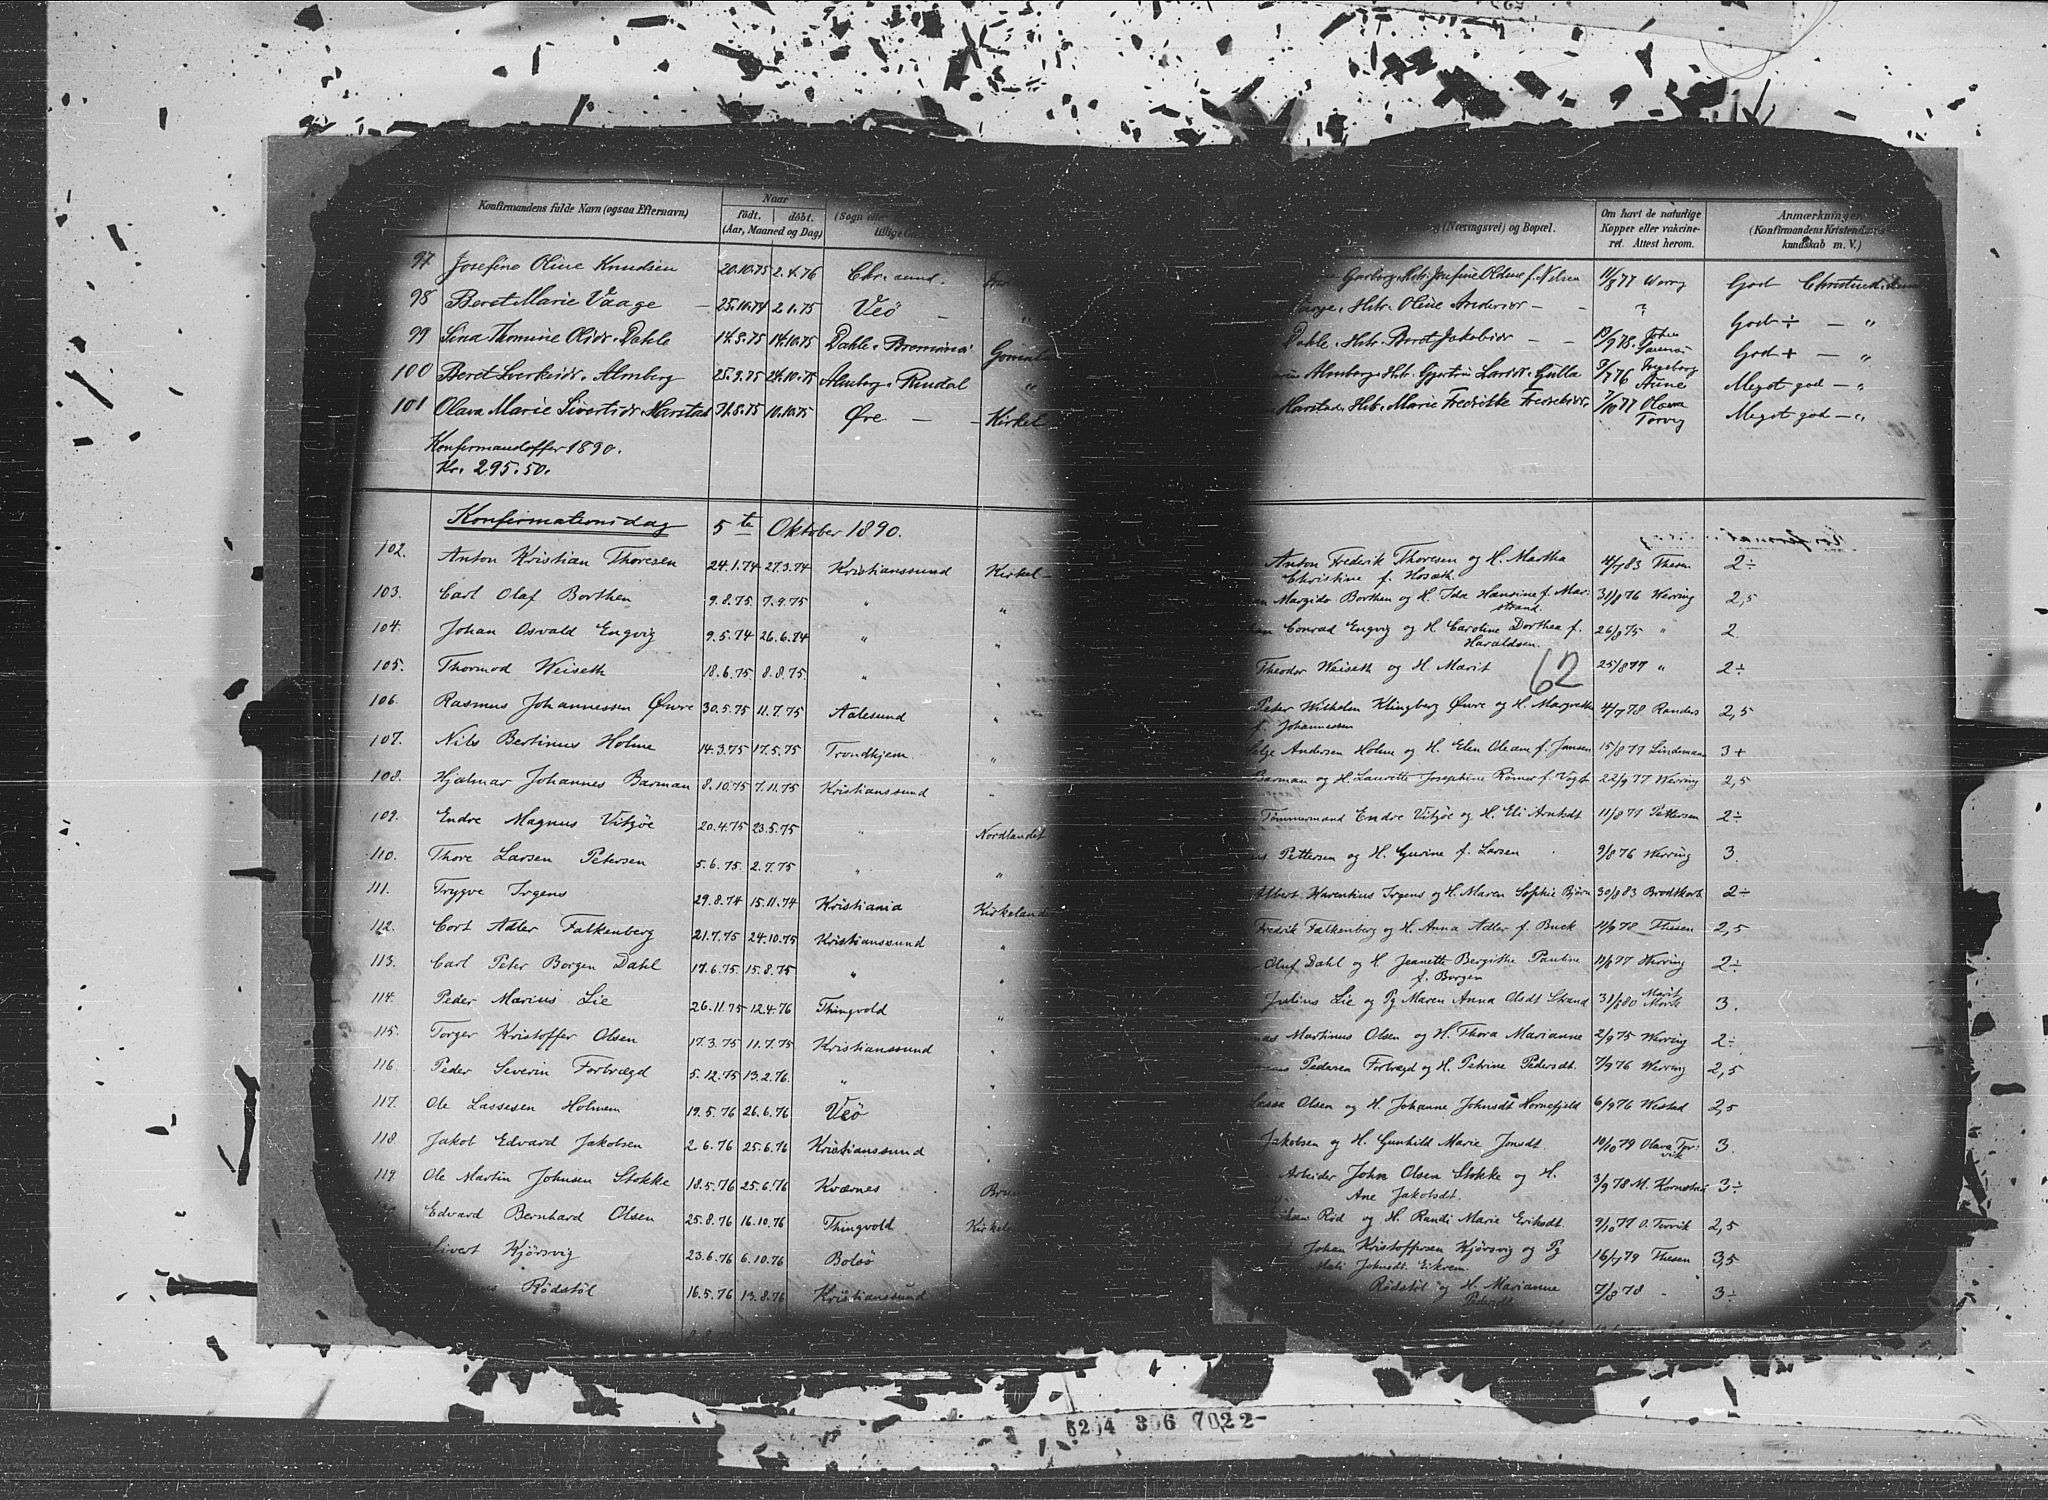 Konfirmandens fulde Navn (ogsaa Efternavn) Naar
födt. döbt.
(Aar, Maaned og Dag)
(Næringsvei) og Bopæl. Om havt de naturlige Kopper eller vakcineret. Attest herom. Anmærkninger (Konfirmandens Kristendoms kundskab m. V.)
97 Josefine Oline Knudsen 20.10.75 2.4.76 Chr.sund. Garborg, Hstr. Josefine Oldine f. Nelsen 11/8 77 Werry God Christiansund
98 Beret Marie Vaage 25.10.74 2.1.75 Veö Hstr. Oline Andersdr 2 God ÷ — "
99 Sina Thomine Olsdr. Dahle 14.8.75 14.10.75 Dahle. Bremsnæs Dahle. Hstr. Beret Jakobsdr God + — "
100 Beret Sverkeidr. Almberg 25.9.75 24.10.75 Almberg. Rindal Almberg. Hstr. Gjertrud Larsdr. Gulla 3/7 76 Ingeborg Aune Meget god — "
101 Olava Marie Sivertsdr. Harstad 31.8.75 10.10.75 Öre Kirkel Harstad. Hstr. Marie Fredrikke Fredriksdr. 7/10 77 Olava Torvig Meget god — "
Konfirmandoffer 1890.
Kr. 295.50.
Konfirmationsdag 5te Oktober 1890.
102. Anton Kristian Thoresen 24.1.74 27.3.74 Kristianssund Kirkel Anton Fredrik Thoresen og H. Martha Christine f. Hosæth. 11/7 83 Thesen 2÷
103. Carl Olaf Borthen 9.8.75 7.9.75 " " Margido Borthen og H. Ida Hansine f. Marstrand. 31/8 76 Werring 2,5
104. Johan Osvald Engvig 9.5.74 26.6.74 " " Conrad Engvig og H. Caroline Dorthea f. Haraldsen. 26/8 75 " 2
105. Thormod Weiseth 18.6.75 8.8.75 " " Theodor Weiseth og H. Marit 25/8 77 " 2÷
62
106. Rasmus Johannessen Öwre 30.5.75 11.7.75 Aalesund " Peter Wilhelm Klingberg Öwre og H. Margrethe f. Johannessen 4/7 78 Randers 2,5
107. Nils Bertinus Holme 14.3.75 17.5.75 Trondhjem " Andersen Holm og H. Elen Oleane f. Jansen 15/8 77 Lindeman 3+
108. Hjalmar Johannes Barman 8.10.75 7.11.75 Kristianssund " Barman og H. Lauritte Josephine Römer f. Vogt 22/9 77 Werring 2,5
109. Endre Magnus Vitzöe 20.4.75 23.5.75 " Nordlandet Tömmermand Endre Vitzöe og H. Eli Arntsdt 11/8 77 Pettersen 2÷
110. Thore Larsen Petersen 5.6.75 2.7.75 " " Pettersen og H. Gurine f. Larsen 9/8 76 Werring 3.
111. Trygve Irgens 29.8.74 15.11.74 Kristiania Kirkeland Albert Warentius Irgens og H. Maren Sophie Bjørn 30/8 83 Brodtkorb 2÷
112. Cort Adler Falkenberg 21.7.75 24.10.75 Kristianssund " Fredrik Falkenberg og H. Anna Adler f. Buck 11/9 78 Thesen 2,5
113. Carl Peter Borgen Dahl 17.6.75 15.8.75 " " Oluf Dahl og H. Jeanette Bergithe Pauline f. Borgen 11/6 77 Werring 2÷
114. Peder Marius Lie 26.11.75 12.4.76 Thingvold " Julius Lie og Pg Maren Anna Olsdt Strand 31/5 80 Marit Mork 3.
115. Torger Kristoffer Olsen 17.3.75 11.7.75 Kristianssund " Martinus Olsen og H. Thora Marianne 2/9 75 Werring 2÷
116. Peder Severin Fortvægd 5.12.75 13.2.76. " " Pedersen Fortvægd og H. Petrine Pedersdt. 7/9 76 Werring 2,5
117. Ole Lassesen Holmem 19.5.76 26.6.76 Veö " Lassa Olsen og H. Johanne Johnsdt Hornefjeld 6/9 76 Westad 2,5
118. Jakob Edvard Jakobsen 2.6.76 25.6.76 Kristianssund " Jakobsen og H. Gunhild Marie Jonsdt. 10/10 79 Olava Torvik 3.
119. Ole Martin Johnsen Stokke 18.5.76 25.6.76 Kværnes Arbeider John Olsen Stokke og H. Ane Jakobsdt. 3/9 78 M. Kornstad 3÷
Edvard Bernhard Olsen 25.8.76 16.10.76 Thingvold Kirkel Röd og H. Randi Marie Eriksdt. 9/10 77 O. Torvik 2,5
Sivert Kjörsvig 23.6.76 6.10.76 Bolsö Johan Kristoffersen Kjörsvig og Pg Mali Johnsdt. Eikrem 16/7 79 Thesen 3,5
Rödstöl 16.5.76 13.8.76 Kristianssund Rödstöl og H. Marianne Pedersdt. 7/8 78 3÷
5204 306 7022-